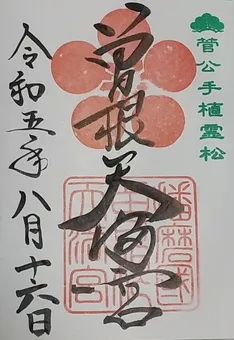 菅公手植霊松
曽根天満宮
令和五年八月十六日
播磨国